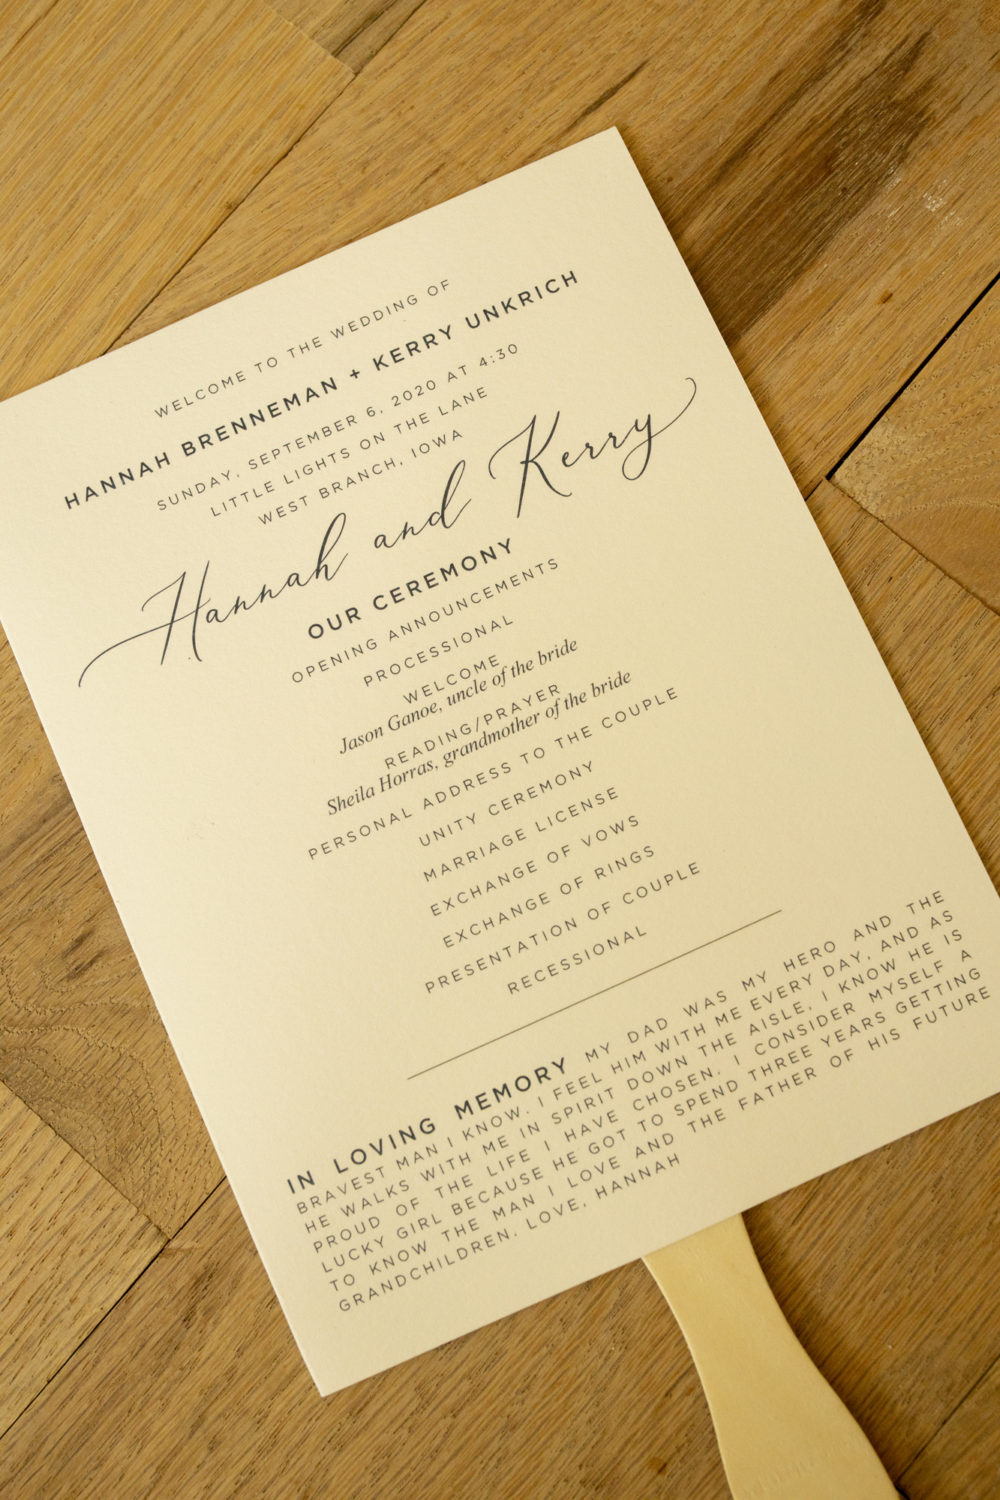 WELCOME TO THE WEDDING OF
HANNAH BRENNEMAN + KERRY UNKRICH
SUNDAY, SEPTEMBER 6, 2020 AT 4:30
LITTLE LIGHTS ON THE LANE
WEST BRANCH, IOWA
Hannah and Kerry
OUR CEREMONY
OPENING ANNOUNCEMENTS
PROCESSIONAL
WELCOME
Jason Ganoe, uncle of the bride
READING/PRAYER
Sheila Horras, grandmother of the bride
PERSONAL ADDRESS TO THE COUPLE
UNITY CEREMONY
MARRIAGE LICENSE
EXCHANGE OF VOWS
EXCHANGE OF RINGS
PRESENTATION OF COUPLE
RECESSIONAL
IN LOVING MEMORY MY DAD WAS MY HERO AND THE
BRAVEST MAN I KNOW. I FEEL HIM WITH ME EVERY DAY, AND AS
HE WALKS WITH ME IN SPIRIT DOWN THE AISLE, I KNOW HE IS
PROUD OF THE LIFE I HAVE CHOSEN. I CONSIDER MYSELF A
LUCKY GIRL BECAUSE HE GOT TO SPEND THREE YEARS GETTING
TO KNOW THE MAN I LOVE AND THE FATHER OF HIS FUTURE
GRANDCHILDREN. LOVE, HANNAH